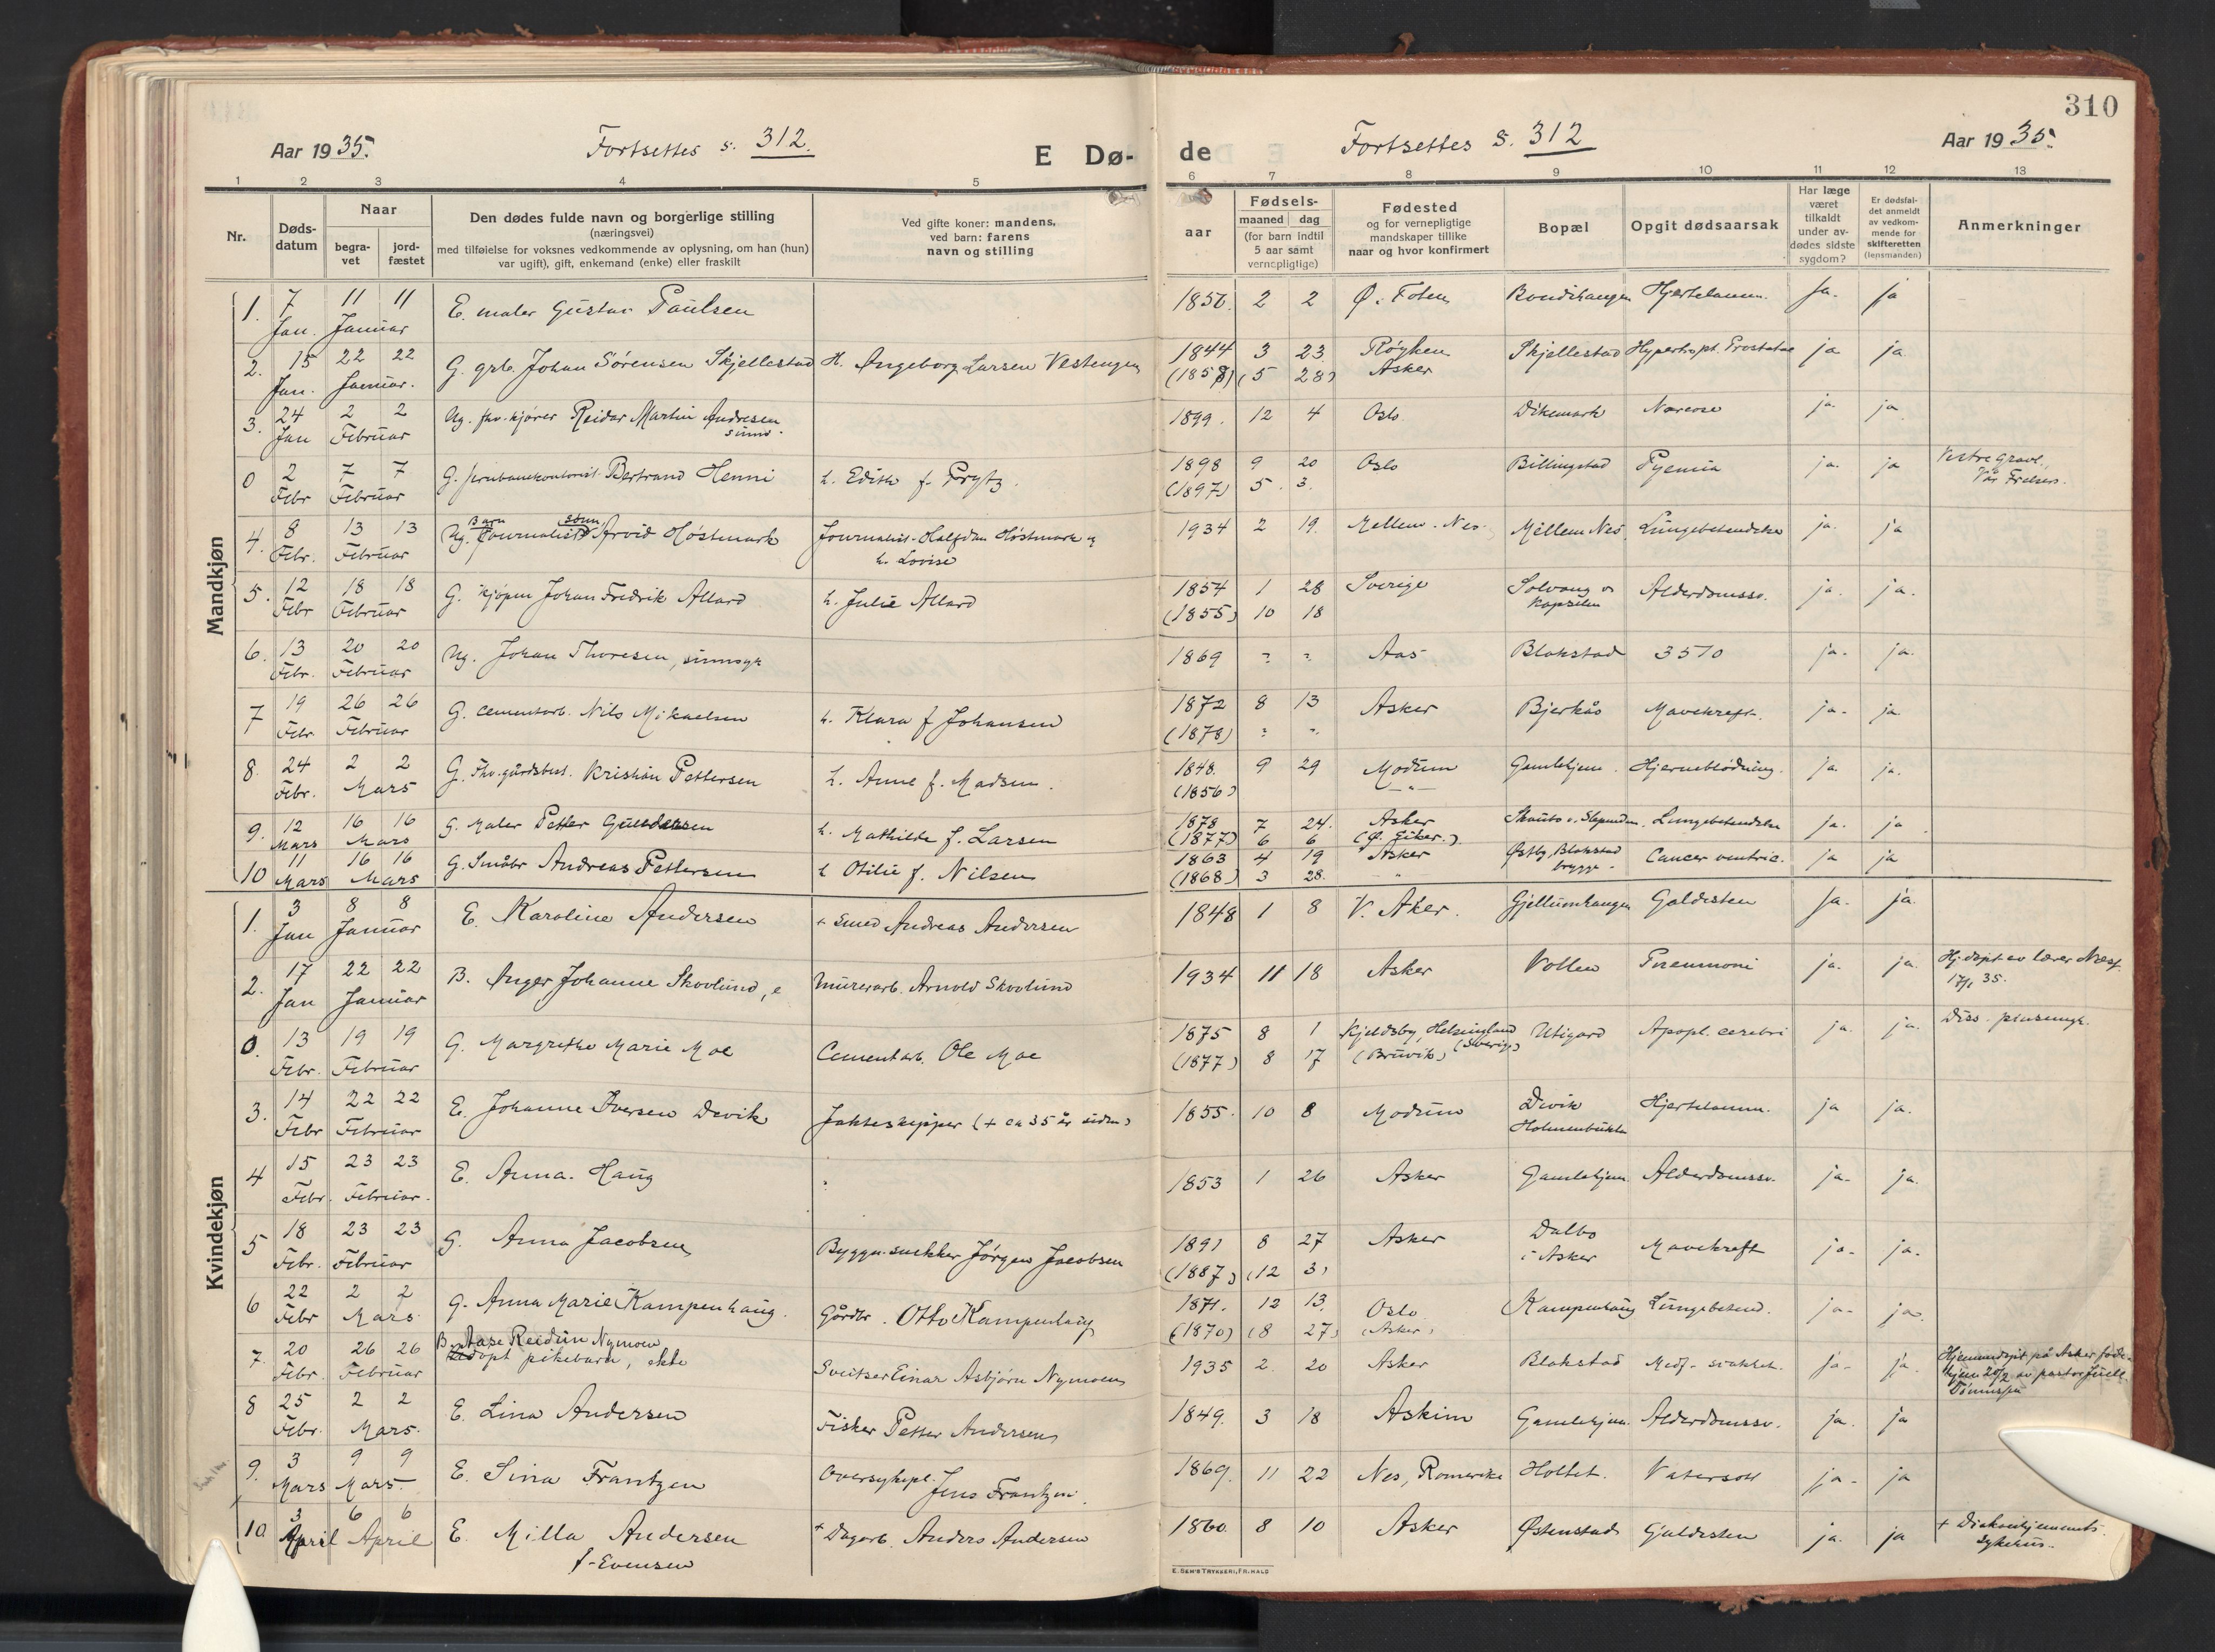 310
Aar 1935. Fortsettes s. 312. E Dø- de Fortsettes s. 312 Aar 1935.
1 2 3 4 5 6 7 8 9 10 11 12 13
Nr.
Døds-
datum
Naar
begra-
vet
jord-
fæstet
Den dødes fulde navn og borgerlige stilling
(næringsvei)
med tilføielse for voksnes vedkommende av oplysning, om han (hun)
var ugift), gift, enkemand (enke) eller fraskilt
Ved gifte koner: mandens,
ved barn: farens
navn og stilling
aar
Fødsels-
maaned dag
(for barn indtil
5 aar samt
vernepligtige)
Fødested
og for vernepligtige
mandskaper tillike
naar og hvor konfirmert
Bopæl
Opgit dødsaarsak
Har læge
været
tilkaldt
under av-
dødes sidste
sygdom?
Er dødsfal-
det anmeldt
av vedkom-
mende for
skifteretten
(lensmanden)
Anmerkninger
Mandkjøn
1. 7 Jan. 11 11 Januar E. maler Gustav Paulsen 1856. 2 2 Ø. Toten Bondihaugen Hjertelamm. Ja. ja
2. 15 Jan. 22 22 Januar. G. grb. Johan Sörensen Skjellestad H. Ingeborg Larsen Vestengen 1844 3 23 Røyken Skjellestad Hypertropt. Prostatae ja ja.
(5 28) Asker
3. 24 Jan 2 2 Februar Ug. fhv. kjører Reidar Martin Andresen 1899. 12 4 Oslo. Dikemark Narcose ja. ja
sinns.
0 2 Febr 7 7 Februar G. jernbanekontorist. Bertrand Henni h. Edith f. Prytz. 1898 9 20 Oslo Billingstad Pyemia ja. ja Vestre gravl.,
(1897) 5. 3. Vår Frelsers.
Barn sønn
4. 8 Febr. 13 13 Februar Ug. Journalist Arvid Høstmark Journalist Halfdan Høstmark og 1934 2 19. Mellem-Nes. Mellem Nes Lungebetendelse ja. ja
h. Lovise
5. 12 Febr 18 18 Februar G. kjøpm Johan Fredrik Allard h. Julie Allard 1854 1 28 Sverige Solvang v. Alderdomssv. ja. ja.
(1855) 10 18 Kapellen
6. 13 Febr. 20 20 Februar Ug. Johan Thoresen, sinnsyk 1869 ? ? Aas Blakstad 3570 ja. ja.
7 19 Febr 26 26 Februar G. cementarb. Nils Mikaelsen h. Klara f Johansen 1872 8 13 Asker Bjerkås Mavekreft. ja. ja
(1878) ? ?
8. 24 Febr. 2 2 Mars G. Fhv. gårdsbest. Kristian Pettersen h. Anne f. Madsen. 1848. 9 29 Modum Gamlehjem. Hjerneblødning. ja. ja.
(1856) — " —
9. 12 Mars 16 16 Mars G. Maler Petter Gulldersen h. Mathilde f. Larsen 1878 7 24. Asker Lungebetendelse ja. ja
(1877) 6 6 (Ø. Eiker.)
10 11 Mars 16 16 Mars G. Småbr Andreas Pettersen h Otilie f. Nilsen 1863 4 19 Asker Østby, Blakstad Cancer ventric. ja ja
(1868) 3 28. " brygge.
Kvindekjøn
1. 3 Jan 8 8 Januar E. Karoline Andersen + smed Andreas Andersen 1848 1 8 V. Aker. Gjellumhaugen Galdesten Ja. ja.
2. 17 Jan 22 22 Januar B. Inger Johanne Skovlund, e Murerarb. Arnold Skovlund 1934 11 18 Asker Vollen Pneumoni ja. ja. Hj. døpt av lærer Næss.
17/1 35.
0. 13 Febr. 19 19 Februar G. Margrethe Marie Moe Cementarb. Ole Moe 1875 8 1 Kjeldsby, Helsingland Utigard Apopl. cerebri ja. ja. Diss. pinsemgh.
(Sverige)
(1877) 8 17 (Bruvik)
3. 14 Febr 22 22 Februar E. Johanne Iversen Devik Jakteskipper (+ ca 35 år siden) 1855. 10 8 Modum Devik Hjertelamm. ja ja.
Holmenbukta
4 15 Febr. 23 23 Februar. E. Anna Haug ? 1853 1 26 Asker Gamlehjem. Alderdomssv. ja. ja.
5 18 Febr. 23 23 Februar G. Anna Jacobsen Byggn.snekker Jørgen Jacobsen 1891 8 27 Asker Dalbo Mavekreft ja. ja.
(1887) (12 3) i Asker
6 22 Febr 2 2 Mars G. Anna Marie Kampenhaug. Gårdbr. Otto Kampenhaug 1871. 12 13. Oslo Kampenhaug Lungebetend. ja. ja.
(1870) (8 27) (Asker)
B. Aase Reidun Nymoen
7. 20 Febr. 26 26 Februar pikebarn, ekte Sveitser Einar Asbjørn Nymoen 1935 2 20 Asker Blakstad Medf. svakhet. ja. ja. Hjemmedøpt på Asker føde-
hjem 20/2 av pastor Juell
8 25 Febr. 2 2 Mars. E. Lina Andersen Fisker Petter Andersen 1849. 3 18 Askim Gamlehjem. Alderdomssv. ja. ja
9. 3 Mars 9 9 Mars. E. Sina Frantzen Oversykepl. Jens Frantzen. 1869. 11 22 Nes, Romerike Holtet. Vatersott ja. ja
10 3 April 6 6 April E. Milla Andersen + Dagarb. Anders Andersen 1860. 8 10 Asker Østenstad Galdesten ja. ja + Diakonhjemmets
f. Evensen sykehus.
E. SEM'S TRYKKERI, FR.HALD